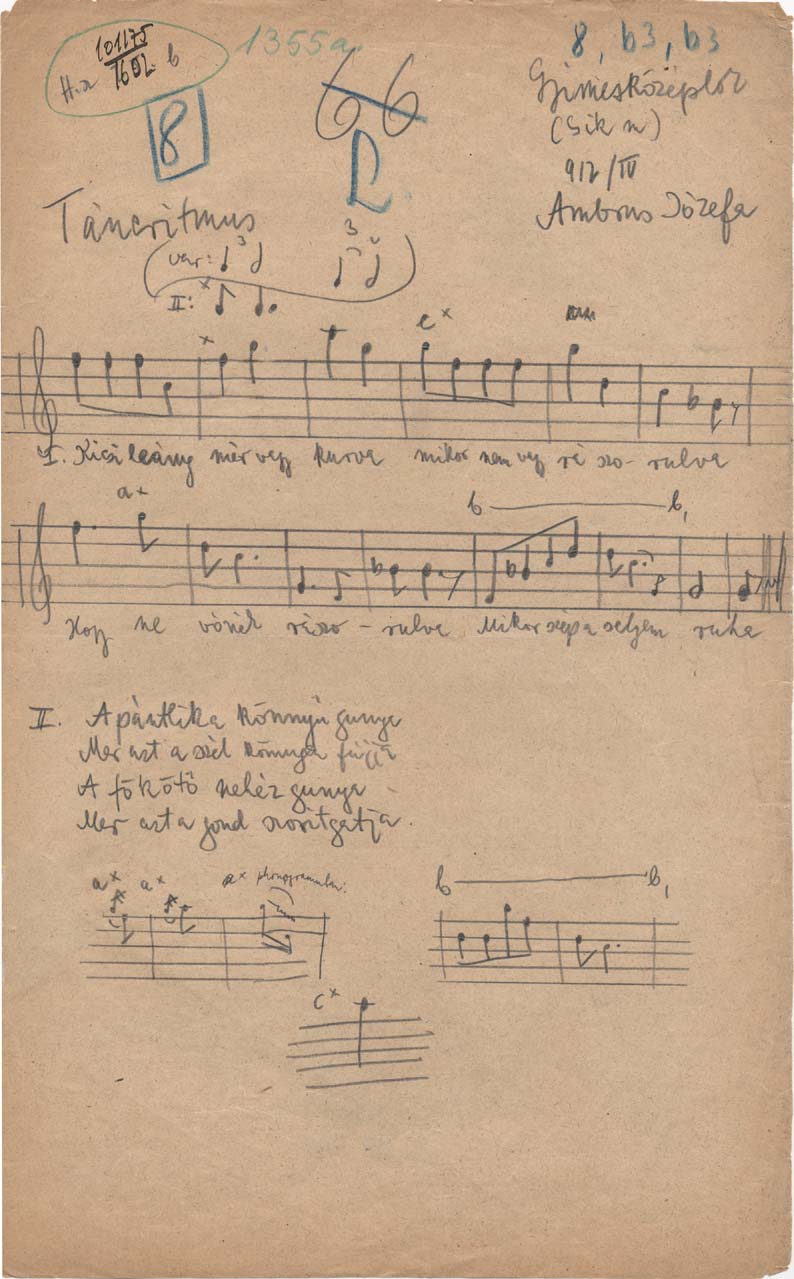 101175
1602. b
1355a.
66
8, b3, b3
8
L
Gyimesközéplok
(Csik m)
912/IV
Ambrus Józefa
Táncritmus
var: 3 3
II: x
x c x
I. Kicsi leány mér vagy kurva mikor nem vagy rá szo- rulva
a x b b,
Hogy ne vónék rászo - rulva Mikor szép a selyem ruha
II. A pántlika könnyű gunya
Mer azt a szél könnyen fújja
A fökötő nehéz gunya
Mer azt a gond szorítgatja.
a x a x phonogrammban: b b,
c x